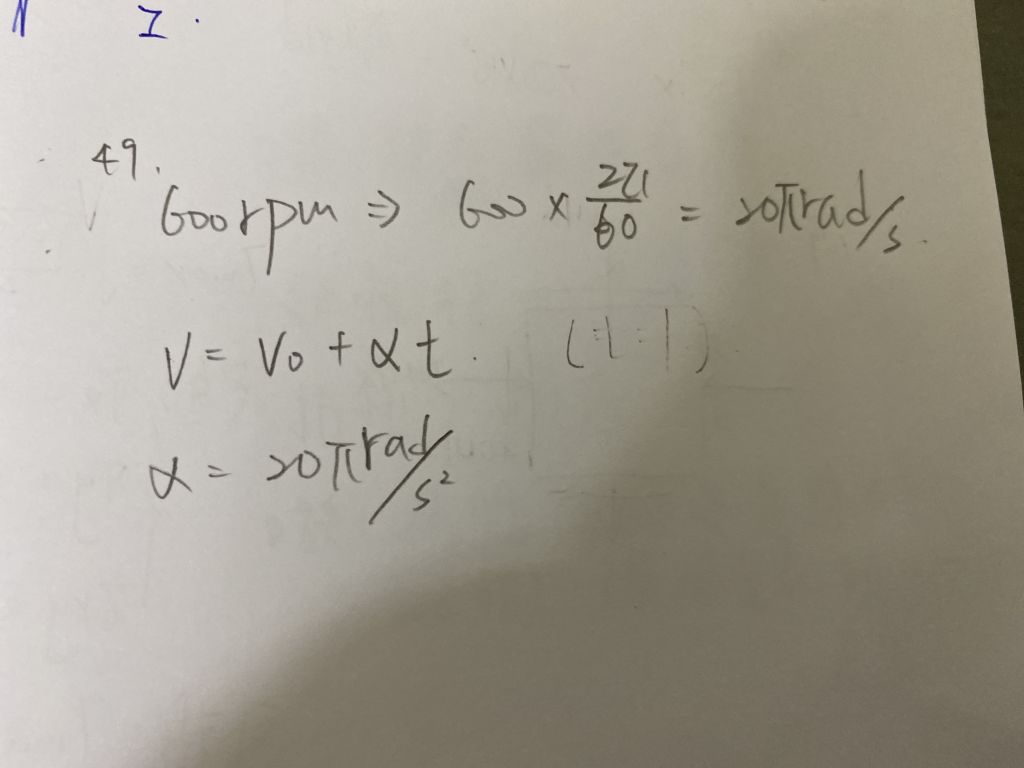 I.
49.
600rpm ⇒ 600 × 2π/60 = 20πrad/s.
V = V0 + αt. (t=1)
α = 20πrad/s²